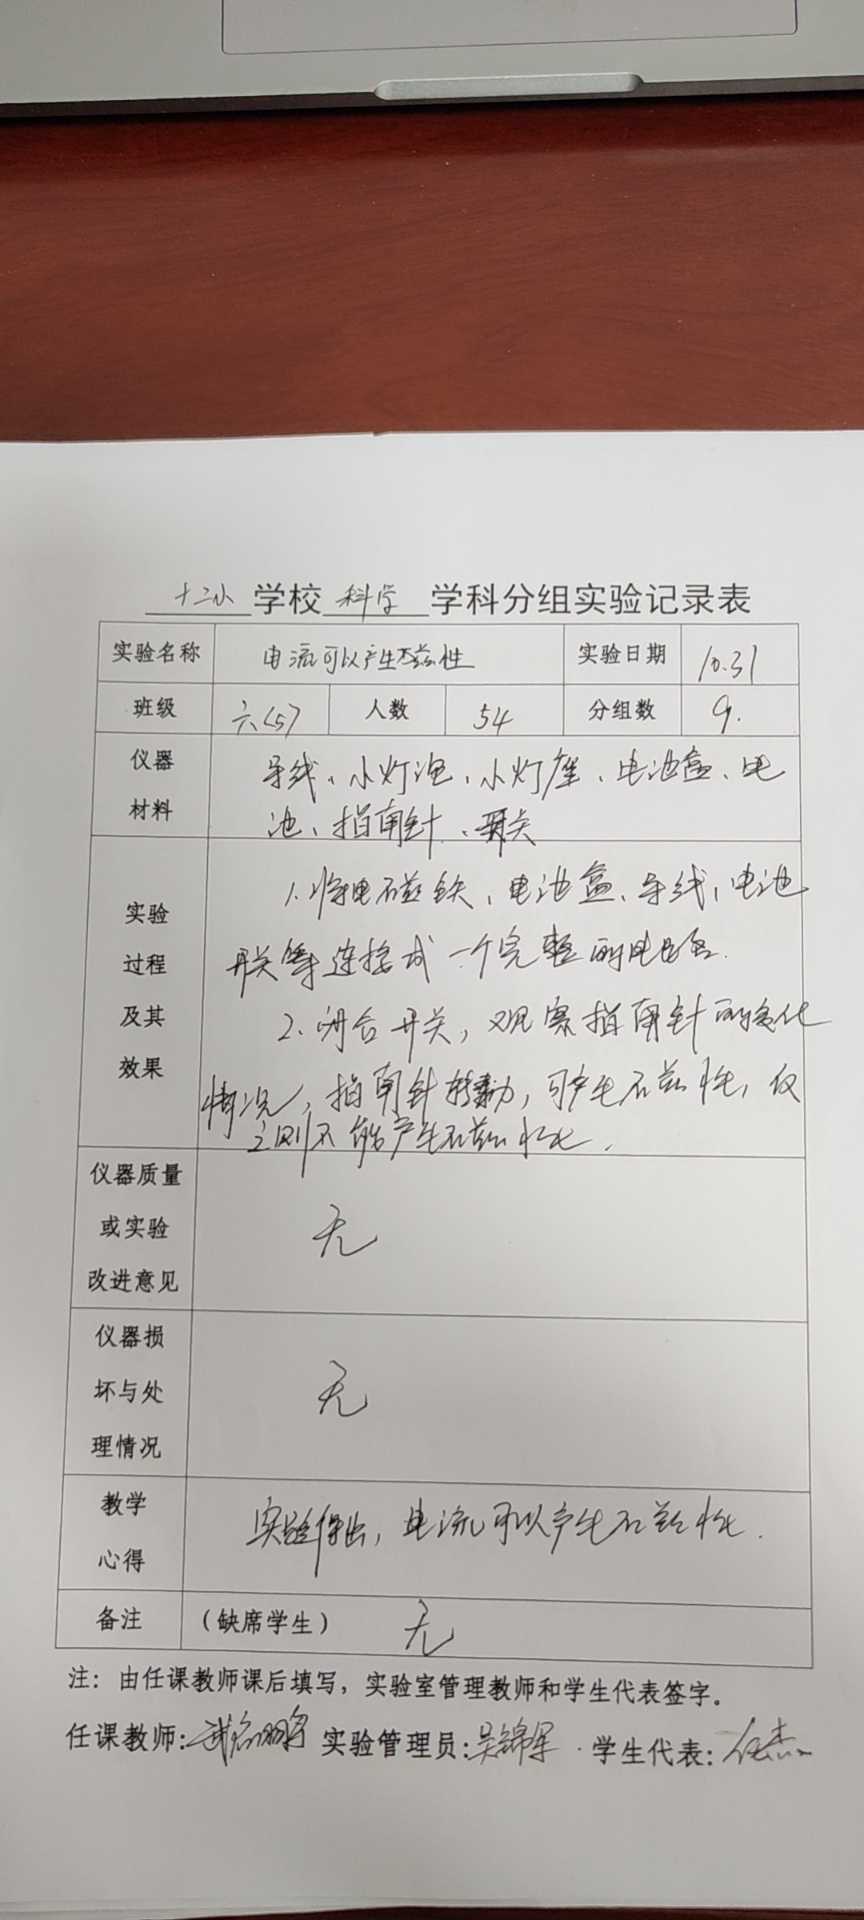 十二小 学校 科学 学科分组实验记录表
实验名称 电流可以产生磁性 实验日期 10.31
班级 六(5) 人数 54 分组数 9.
仪器材料 导线、小灯泡、小灯座、电池盒、电
池、指南针、开关
实验过程及其效果 1.将电磁铁、电池盒、导线、电池
开关等连接成一个完整的电路.
2.闭合开关,观察指南针的变化
情况,指南针转动,可产生磁性,反
之则不能产生磁性.
仪器质量或实验改进意见 无
仪器损坏与处理情况 无
教学心得 实验得出,电流可以产生磁性.
备注 (缺席学生) 无
注:由任课教师课后填写,实验室管理教师和学生代表签字。
任课教师: 实验管理员:吴锦军 学生代表:任杰